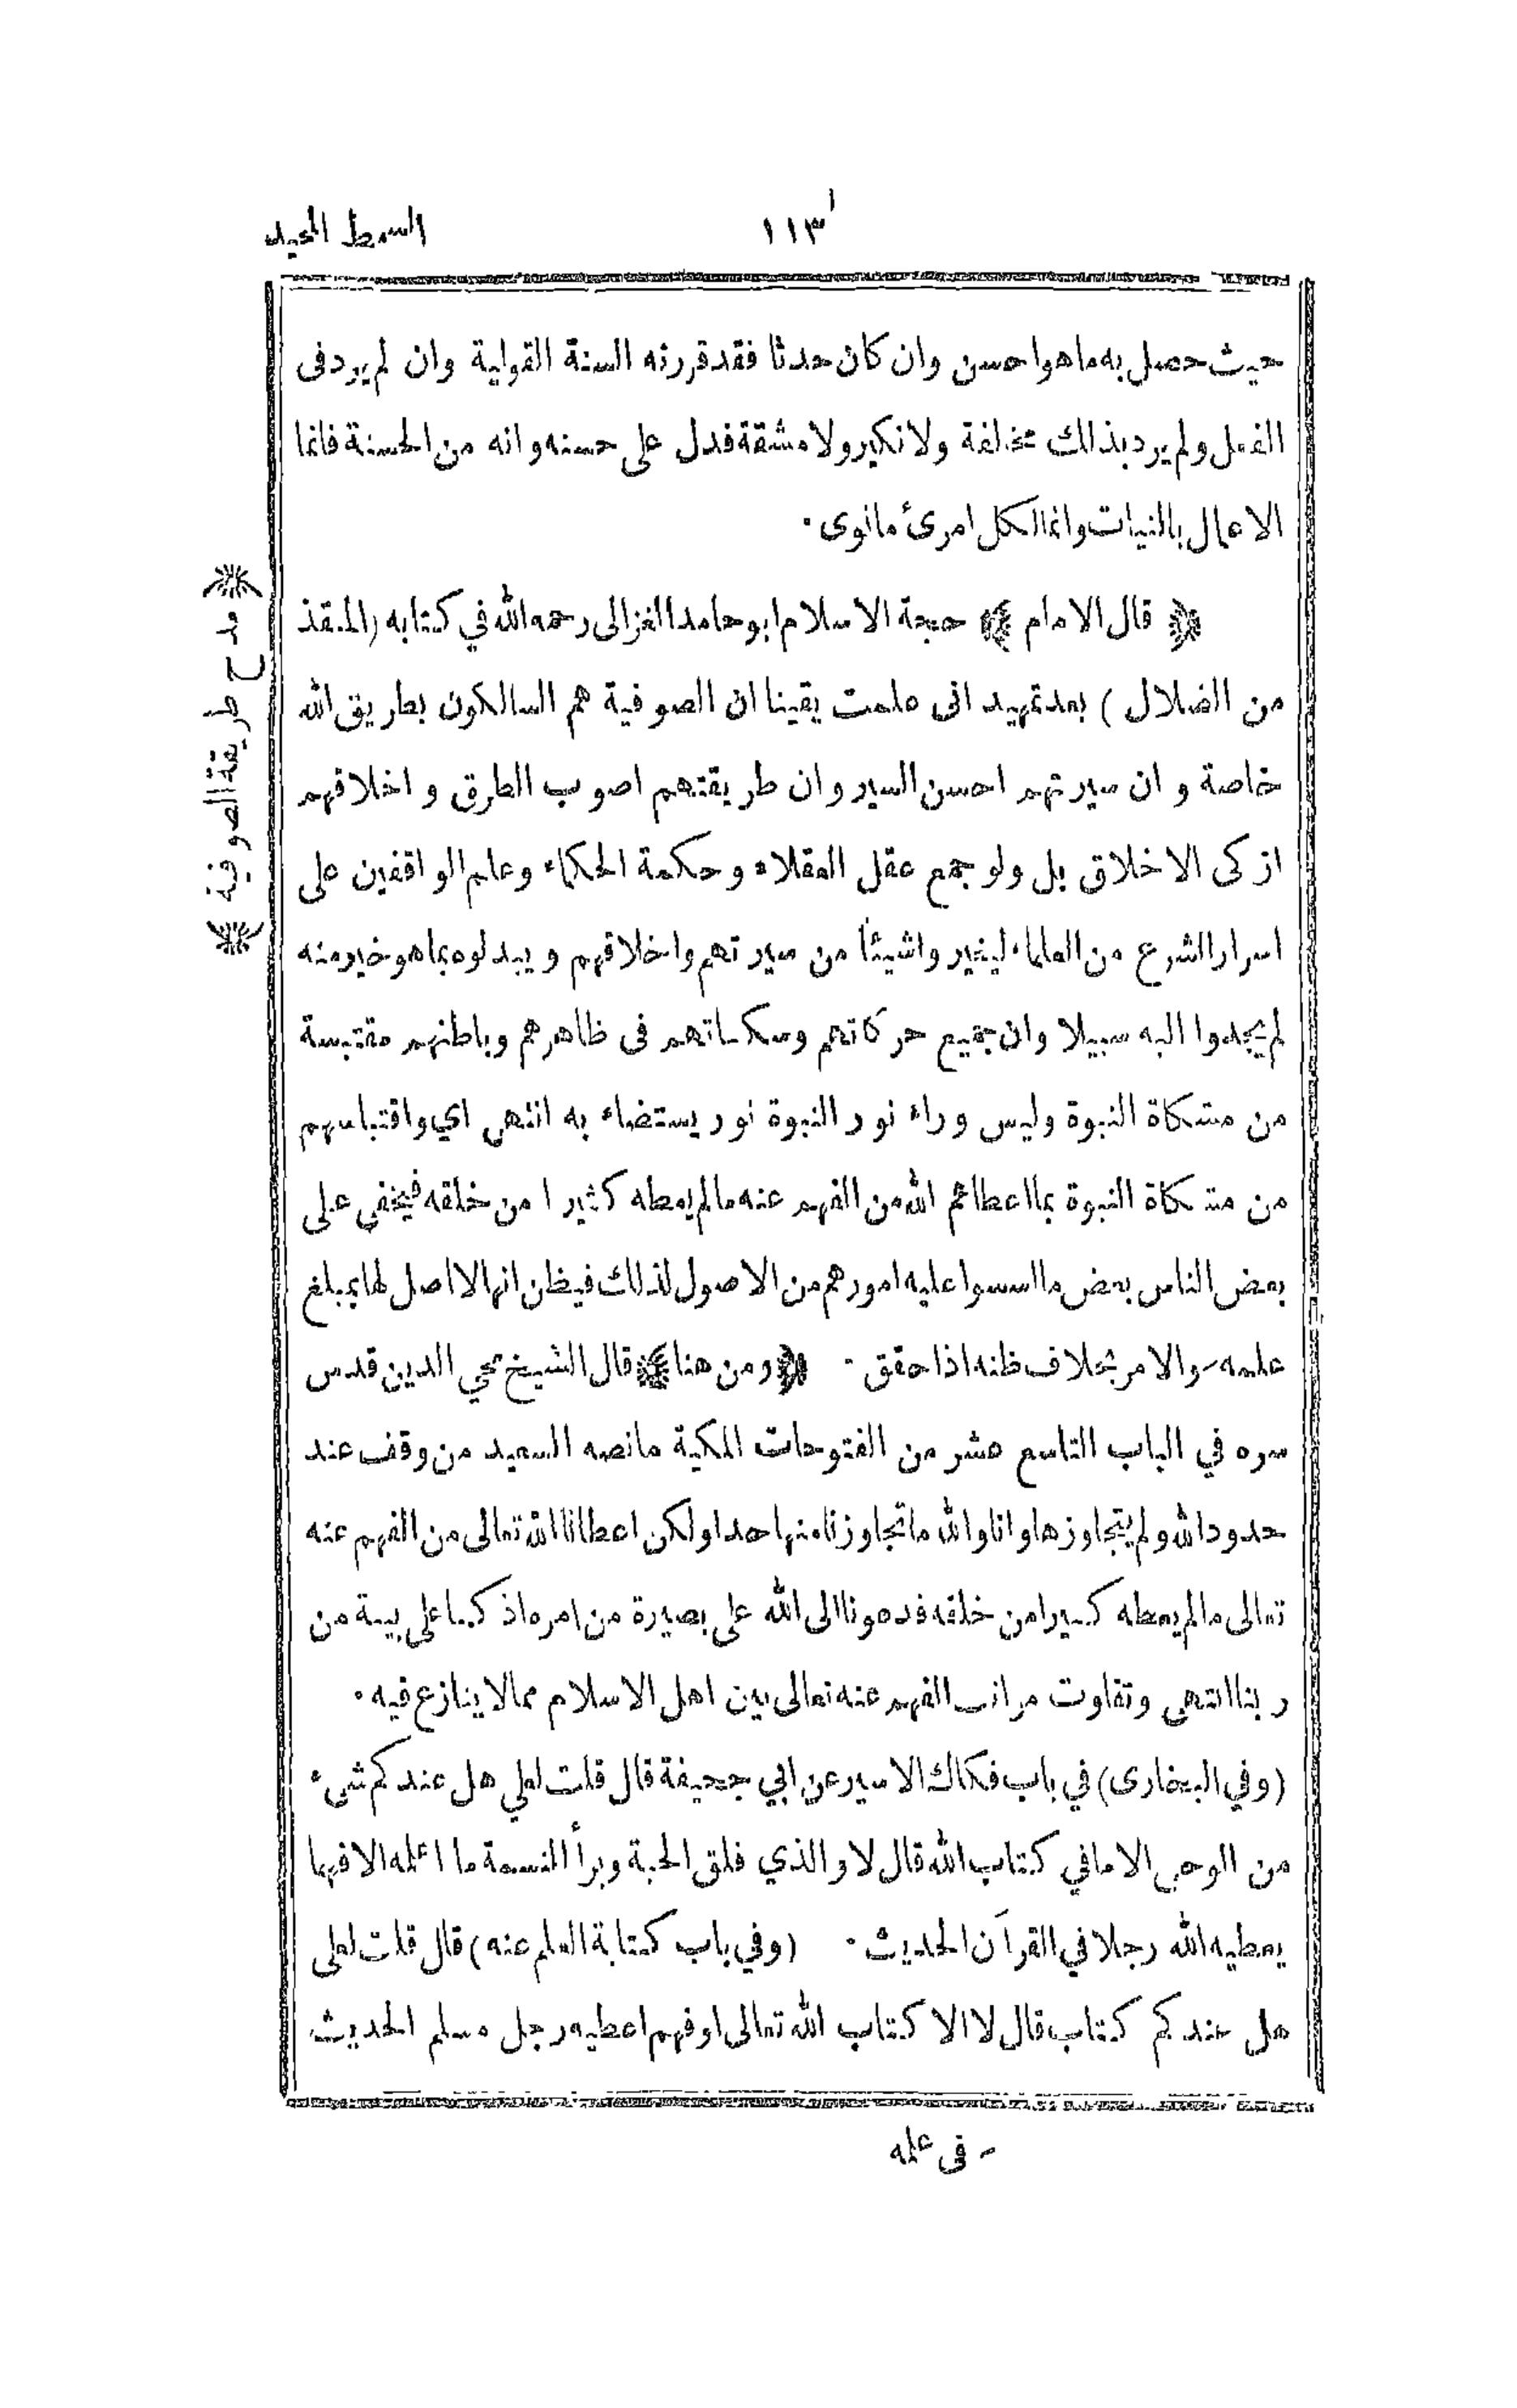 ١١٣ السمط المجيد
حيث حصل به ماهوا حسن وان كان حدثا فقد قررته السنة القولية وان لم يرد فى
الفعل ولم يرد بذالك مخالفة ولا نكير ولا مشقة فدل على حسنه وانه من الحسنة فانما
الاعمال بالنيات وانما لكل امرئ مانوى ٠
﴿ قال الامام ﴾ حجة الاسلام ابو حامد الغزالى رحمه الله في كتابه (المنقذ
من الضلال ) بعد تمهيد انى علمت يقينا ان الصوفية هم السالكون بطريق الله
خاصة و ان سيرتهم احسن السير وان طريقتهم اصوب الطرق و اخلاقهم
ازكى الاخلاق بل ولو جمع عقل العقلاء وحكمة الحكماء وعلم الواقفين على
اسرار الشرع من العلماء ليغيروا شيئاً من سيرتهم واخلاقهم ويبدلوه بماهو خير منه
لم يجدوا اليه سبيلا وان جميع حركاتهم وسكناتهم فى ظاهرهم وباطنهم مقتبسة
من مشكاة النبوة وليس وراء نور النبوة نور يستضاء به انتهى اي واقتباسهم
من مشكاة النبوة بما اعطاهم الله من الفهم عنه مالم يعطه كثيرا من خلقه فيخفى على
بعض الناس بعض ما اسسوا عليه امورهم من الاصول لذلك فيظن انها لا اصل لها بمبلغ
علمه ـ والامر بخلاف ظنه اذا حقق ٠ ﴿ ومن هنا ﴾ قال الشيخ محي الدين قدس
سره في الباب التاسع عشر من الفتوحات المكية مانصه السعيد من وقف عند
حدود الله ولم يتجاوزها وانا والله ماتجاوزنا منها حدا ولكن اعطانا الله تعالى من الفهم عنه
تعالى مالم يعطه كثيرا من خلقه فدعونا الى الله على بصيرة من امره اذ كنا على بينة من
ربنا انتهى وتفاوت مراتب الفهم عنه تعالى بين اهل الاسلام ممالا ينازع فيه ٠
(وفي البخارى) في باب فكاك الاسير عن ابي جحيفة قال قلت لعلي هل عندكم شىء
من الوحى الا مافي كتاب الله قال لا و الذي فلق الحبة وبرأ النسمة ما اعلمه الا فهما
يعطيه الله رجلا في القرآن الحديث ٠ (وفي باب كتابة العلم عنه) قال قلت لعلى
هل عندكم كتاب قال لا الا كتاب الله تعالى اوفهم اعطيه رجل مسلم الحديث
ـ فى علمه
﴿ مدح طريقة الصوفية ﴾